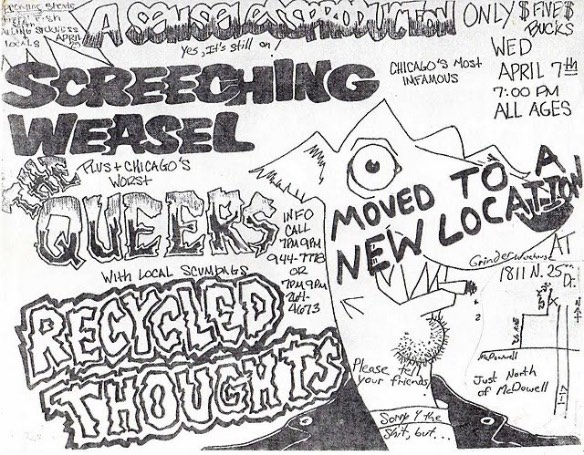 Upcoming Shows
A SENSELESS PRODUCTION
ONLY $FIVE$
BUCKS
Yes, It's still on!
WED
APRIL 7th
7:00 PM
ALL AGES
CHICAGO'S MOST
INFAMOUS
SCREECHING
WEASEL
PLUS + CHICAGO'S
WORST
THE
QUEERS
INFO
CALL
7PM 9PM
944-7778
OR
7PM 9PM
264-
4673
MOVED TO A
NEW LOCATION
AT
1811 N. 25th Dr.
With LOCAL SCUMBAGS
RECYCLED
THOUGHTS
McDowell
I-17
Just North
of McDowell
Please tell
your friends
Sorry 4 the
shit, but...